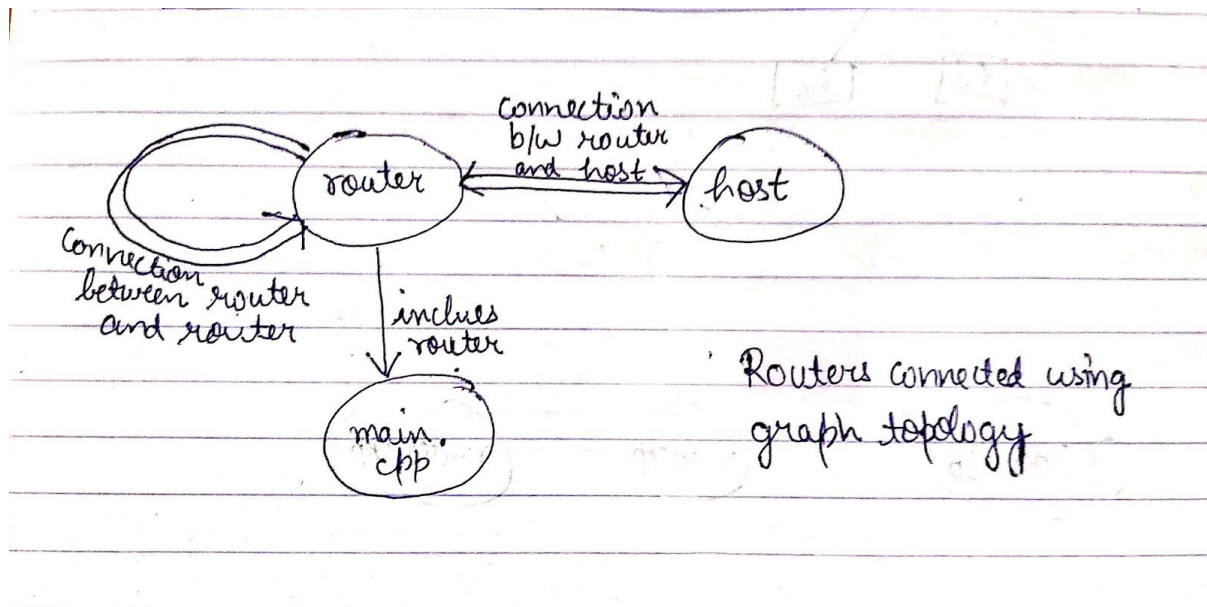 connection
b/w router
and host
router
host
connection
between router
and router
inclues
router
main.
cpp
Routers connected using
graph topology